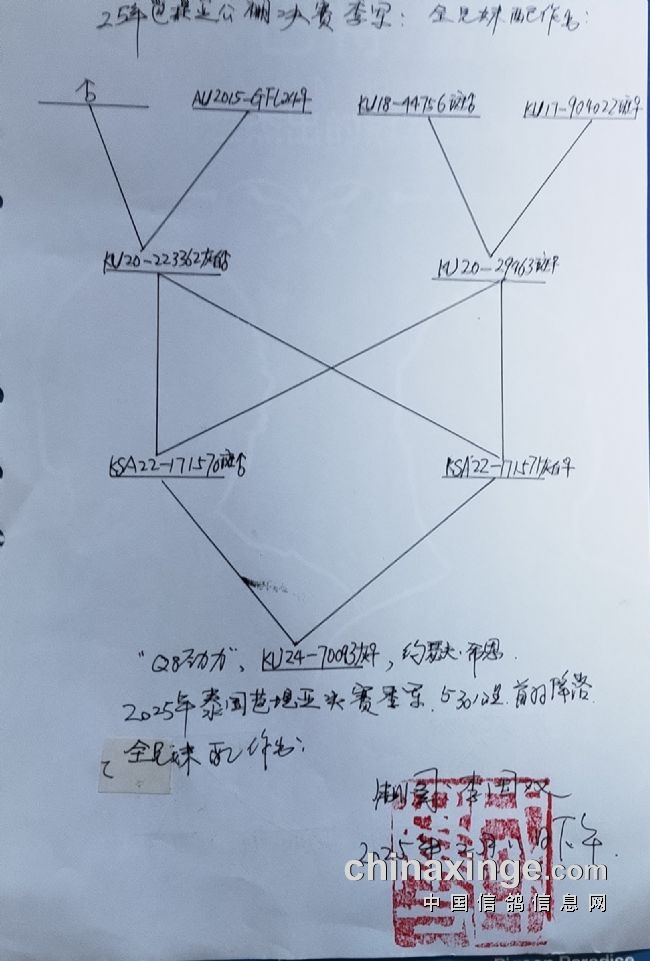 25年芭提亚公棚决赛季军：全兄妹配作出：
♂ AU2015-GFL244♀ KU18-44756斑♂ KU17-904022斑♀
KU20-223362灰白♂ KU20-29963斑♀
KSA22-171570斑♂ KSA22-171571灰白♀
"Q8动力"、KU24-70093灰♀，约瑟夫·希恩
2025年泰国芭提亚决赛季军、530公里 首羽降落
全兄妹配作出：
棚司：李国
2025年2月 日下午.
chinaxinge.com
中国信鸽信息网